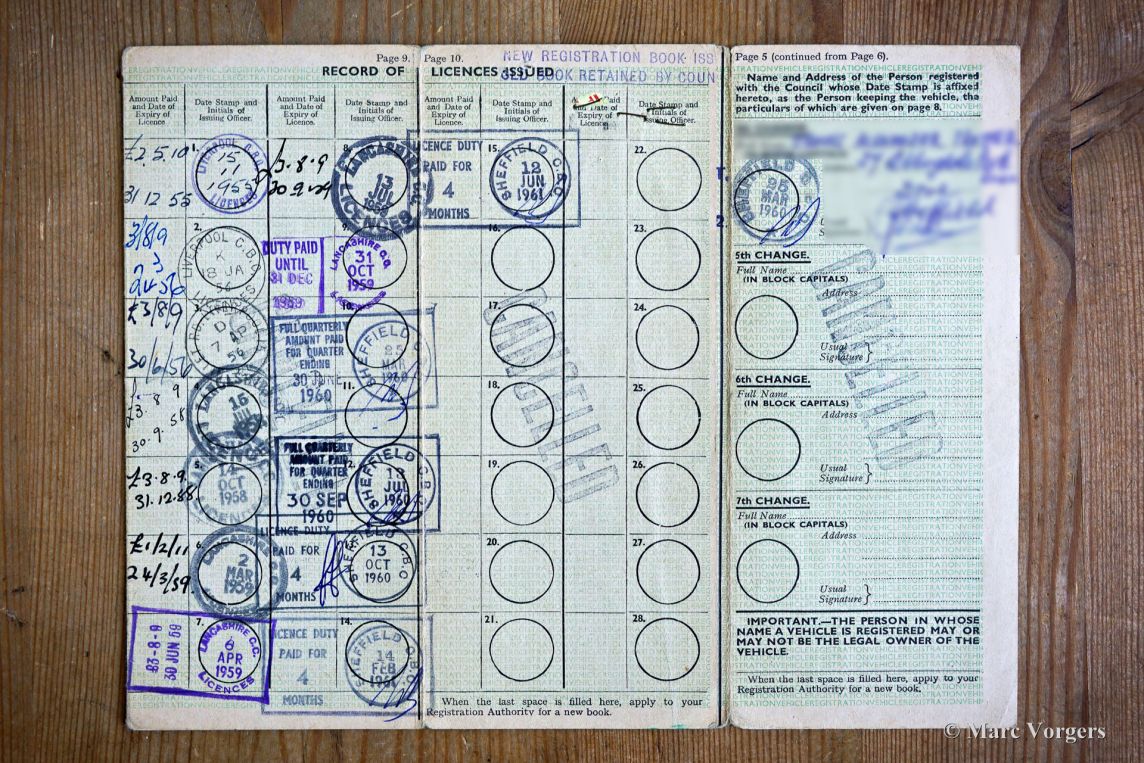 Page 9.
RECORD OF
Amount Paid and Date of Expiry of Licence.
Date Stamp and Initials of Issuing Officer.
Amount Paid and Date of Expiry of Licence.
Date Stamp and Initials of Issuing Officer.
£2 5 10
31 12 55
LIVERPOOL C.B.C.
15
1955
LICENCES
3/8/9
24 3 56
2.
LIVERPOOL C.B.C.
K
18 JA
56
£3/8/9
30/6/56
7 AP
56
£3 . 8 9
30 . 9 . 58
LANCASHIRE
15
JUL
LICENCES
£3 . 8 . 9.
31 . 12 . 58
5.
14
OCT
1958
LICENCES
£1/2/11
24/3/59.
6.
LANCASHIRE C.C.
2
MAR
1959
£3-8-9
30 JUN 59
7.
LANCASHIRE C.C.
6
APR
1959
LICENCES
£3 . 8 . 9
8.
LANCASHIRE
JUL
1959
LICENCES
DUTY PAID
UNTIL
31 DEC
1959
9.
LANCASHIRE C.C.
31
OCT
1959
LICENCES
10.
FULL QUARTERLY
AMOUNT PAID
FOR QUARTER
ENDING
30 JUNE
1960
SHEFFIELD
MAR
1960
11.
FULL QUARTERLY
AMOUNT PAID
FOR QUARTER
ENDING
30 SEP
1960
SHEFFIELD C.B.C.
13
JUL
1960
LICENCE DUTY
PAID FOR
4
MONTHS
SHEFFIELD C.B.C
13
OCT
1960
14.
LICENCE DUTY
PAID FOR
4
MONTHS
SHEFFIELD C.B.C
14
FEB
1961
Page 10.
NEW REGISTRATION BOOK ISS
OLD BOOK RETAINED BY COUN
LICENCES ISSUED
Amount Paid and Date of Expiry of Licence.
Date Stamp and Initials of Issuing Officer.
Paid and Date of Expiry of Licence.
Date Stamp and Initials of Issuing Officer.
LICENCE DUTY
PAID FOR
4
MONTHS
15.
SHEFFIELD C.B.C
12
JUN
1961
16.
17.
18.
19.
20.
21.
CANCELLED
22.
23.
24.
25.
26.
27.
28.
When the last space is filled here, apply to your
Registration Authority for a new book.
Page 5 (continued from Page 6).
Name and Address of the Person registered
with the Council whose Date Stamp is affixed
hereto, as the Person keeping the vehicle, the
particulars of which are given on page 8.
SHEFFIELD
25
MAR
1960
CANCELLED
5th CHANGE.
Full Name
(IN BLOCK CAPITALS)
Address
Usual
Signature }
6th CHANGE.
Full Name
(IN BLOCK CAPITALS)
Address
Usual
Signature }
7th CHANGE.
Full Name
(IN BLOCK CAPITALS)
Address
Usual
Signature }
IMPORTANT.—THE PERSON IN WHOSE
NAME A VEHICLE IS REGISTERED MAY OR
MAY NOT BE THE LEGAL OWNER OF THE
VEHICLE.
When the last space is filled here, apply to your
Registration Authority for a new book.
© Marc Vorgers